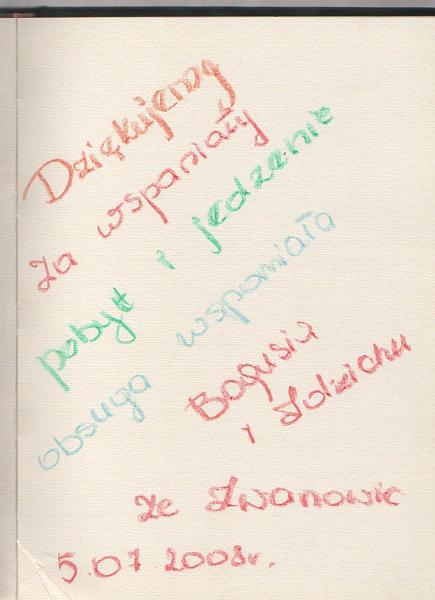 Dziękujemy
za wspaniały
pobyt i jedzenie
obsuga wspomiała
Bogusia
i Zdzichu
ze Iwanowic
5.07.2008r.